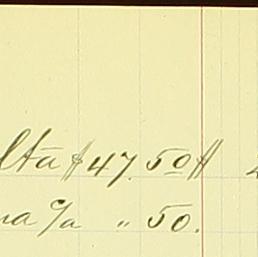 lta $47.50 #
na c/a " 50.